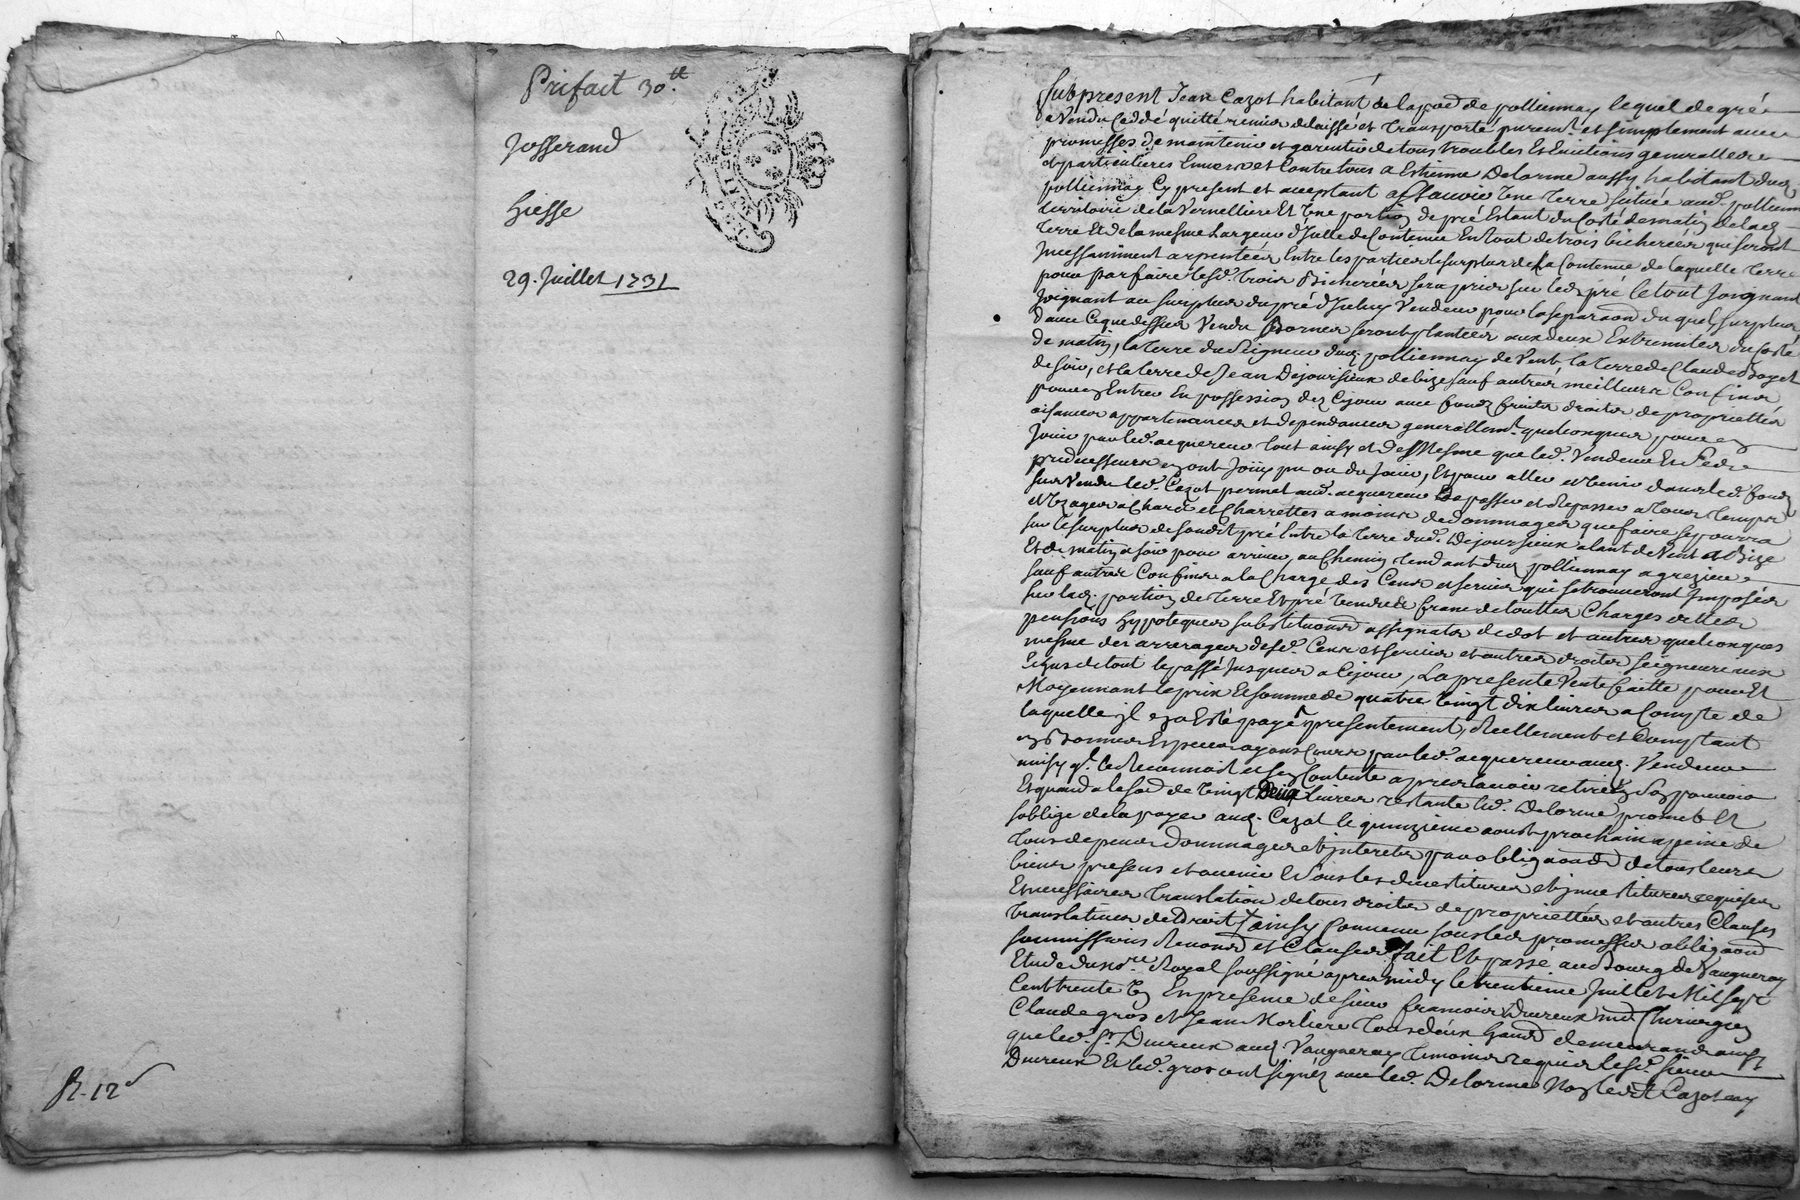 Prifait 30.tt
Josserand
Giesse
29. Juillet 1731
R. 12 d
fut present Jean Cazot habitant de la parr de polliennay lequel de gré
a Vendu Ceddé quitté remis delaissé et transporté purem.t et simplement avec
promesses de maintenir et garentir de tous troubles Et Evictions generalle et
et particulieres Envers et Contre tous a Estienne Delorme aussy habitant dud.
polliennay Cy present et acceptant assavoir Une Terre scituée aud. pollienn
territoire de la Vernelliere Et Une portion de pré Estant du Costé de matin de lad.
terre Et de la mesme Largeur d'Icelle de Contenue En tout de trois bicherées que seront
Jncessamment arpentées Entre les parties le surplus de la Contenue de laquelle terre
pour parfaire lesd. trois Bicherées sera pris sur led. pré le tout Joignant
Joignant au surplus du pré d'Iceluy Vendeur pour la separaon du quel surplus
d'avec Ce que dessus Vendu Bornes seront plantées aux deux Extremites du Costé
de matin, la terre du Seigneur dud. polliennay de Vent la terre de Claude Bozet
de soir, et la terre de Jean Dejoursieux de bize sauf autres meilleurs Confins
pour En Entrer En possession dez Cejour avec fondz fruits droits de proprietés
aisances appartenances et dependances generallem.t quelconques pour en
Jouir par led. acquereur tout ainsy et de Mesme que led. Vendeur Et Ses
predecesseurs en ont Jouy pu ou du Jouir, Et pour aller et Venir dans led. fondz
sus Vendu led. Cazot permet aud. acquereur De passer et Repasser a tous temps
et Uzages a Chars et Charrettes a moins de dommages que faire se pourra
sur le surplus de sondit pré Entre la terre dud. Dejoursieux alant de Vent a Bize
Et de matin a soir pour arriver au Chemin tendant dud. polliennay a grezieu
sauf autres Confins a la Charge des Cens et servis qui se trouveront Imposés
sur lad. portion de terre Et pré Vendre franc de touttes Charges dettes
pensions hypoteques substituons assignats de dot et autres quelconques
mesme des arrerages desd. Cens et servis et autres droits seigneuriaux
Echus de tout le passé Jusques a Cejour, La presente Vente faitte pour Et
Moyennant le prix Et somme de quatre Vingt dix livres a Compte de
laquelle il en a Esté payé presentement, Reellement et Comptant
en Bonnes Especes ayans Cours par led. acquereur aud. Vendeur
ainsy q.l le Reconnoit et s'en Contente apres lavoir retirée En son pouvoir
Et quand a la so.e de Vingt Deux livres restante led. Delorme promet Et
soblige de la payer aud. Cazot le quinzieme aoust prochain a peine de
tous depens dommages et interets par obligaons de tous leurs
biens presens et avenir Et sous les devestitures et investitures requises
Et necessaires translation de tous droits de proprietés et autres Clauses
translatives de Droit ainsy Convenu sous les promesses obligaons
soumissions Renonc.s et Clauses fait Et passé au Bourg de Vaugneray
Etude du no.re Royal soussigné apres midy le trentieme Juillet Mil sept
Cent trente Un En presence de sieur francois Ducreux me Chirurgien
Claude gros et Jean Morliere tous deux demeurant aussy
que led. S.r Ducreux aud. Vaugneray temoins requis lesd. sieur
Ducreux Et led. gros ont signéz avec led. Delorme Non led. Cazot ny